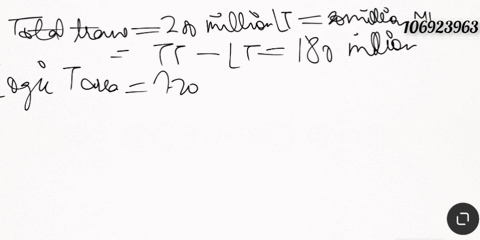 Total trans = 200 million LT = 20 million MT
106923963
= TT - LT = 180 million
Logic T area = 720